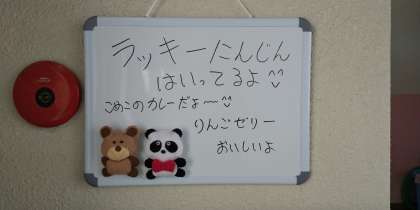 ラッキーにんじん
はいってるよ^^
こめこのカレーだよ〜^^
りんごゼリー
おいしいよ